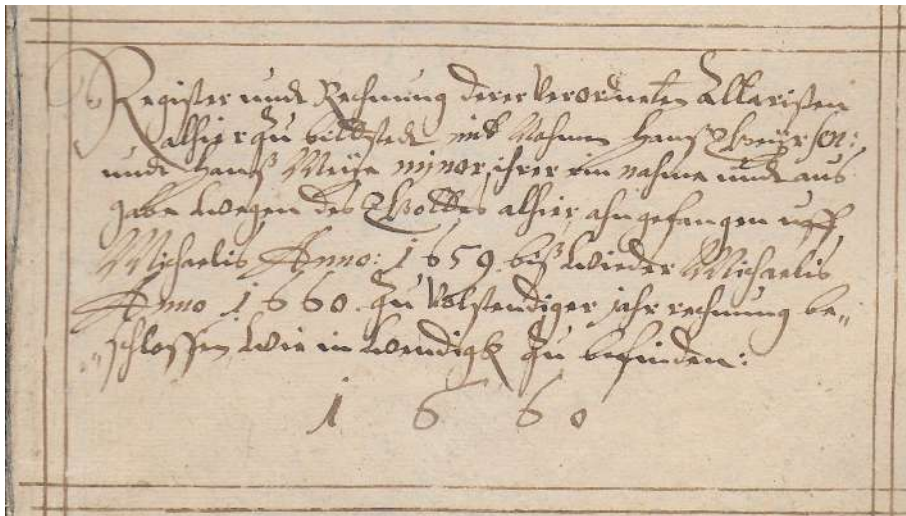 Register undt Rechnung derer verordneten Altaristen
alhier zu bilstedt mit Nahmen Hanß Weyser sen:
undt Hanß minor, ihrer ein nahme undt aus
gabe wegen des alhier, ahn gefangen uff
Michaelis Anno: 1659 biß wieder Michaelis
Anno 1660 zu volstendiger jahr rechnung be„
„schlossen wie in wendigk zu befinden:
1 6 6 0